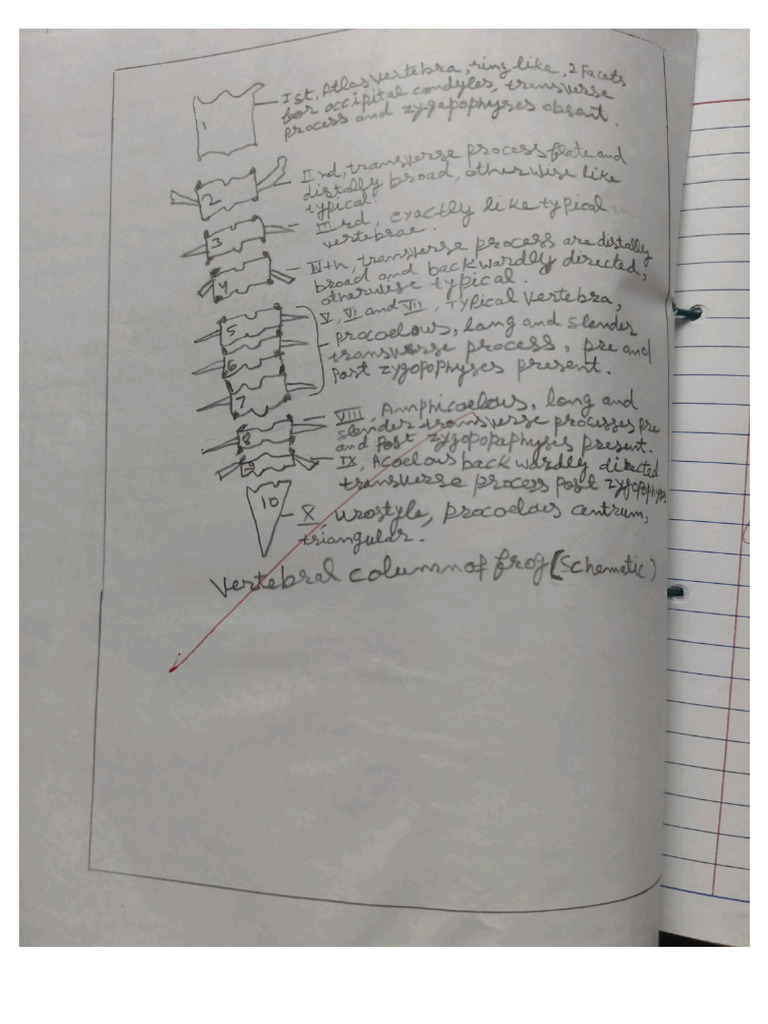 1
Ist, Atlas vertebra, ring like, 2 Facets
for occipital condyles, transverse
process and zygapophyses absent.
2
IInd, transverse process flate and
distally broad, otherwise like
typical.
3
IIIrd, exactly like typical
vertebrae.
4
IVth, transverse process are distally
broad and backwardly directed,
otherwise typical.
5
6
7
V, VI and VII, Typical vertebra,
procoelous, long and slender
transverse process, pre and
Post zygopophyses present.
8
VIII, Amphicoelous, long and
slender transverse processes pre
and Post zygopopophysis present.
9
IX, Acoelous backwardly directed
transverse process Post zygopophyses
10
X, Urostyle, procoelous centrum,
triangular.
Vertebral column of frog (Schematic)